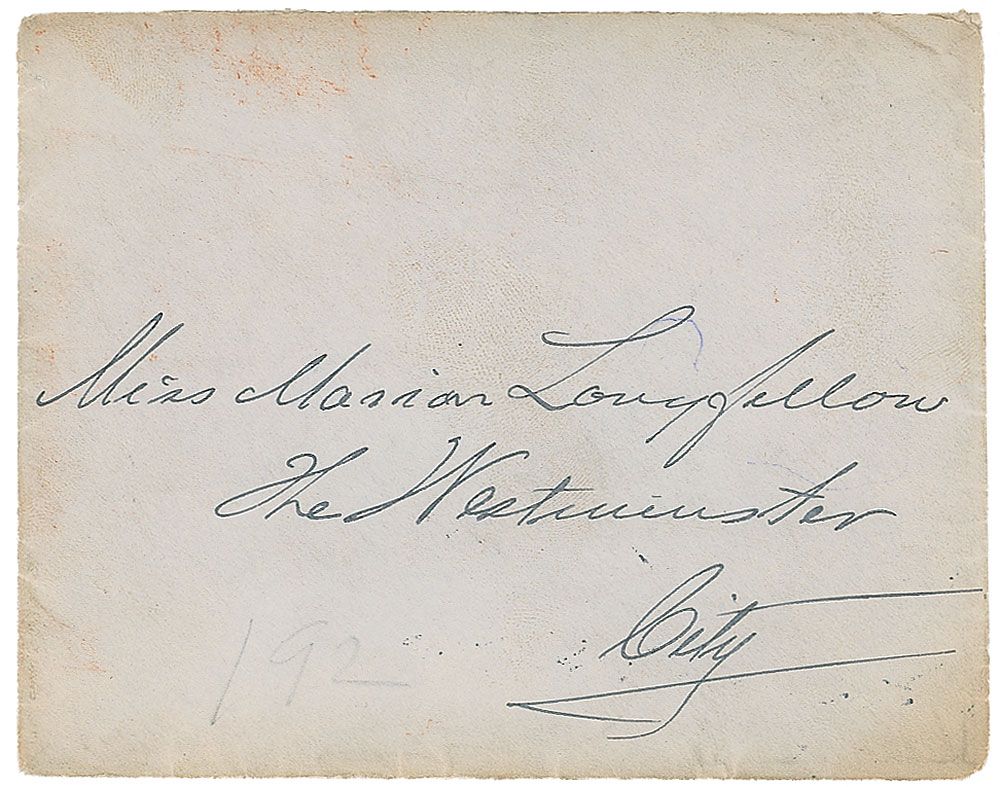 Miss Marian Longfellow
The Westminster
City
192